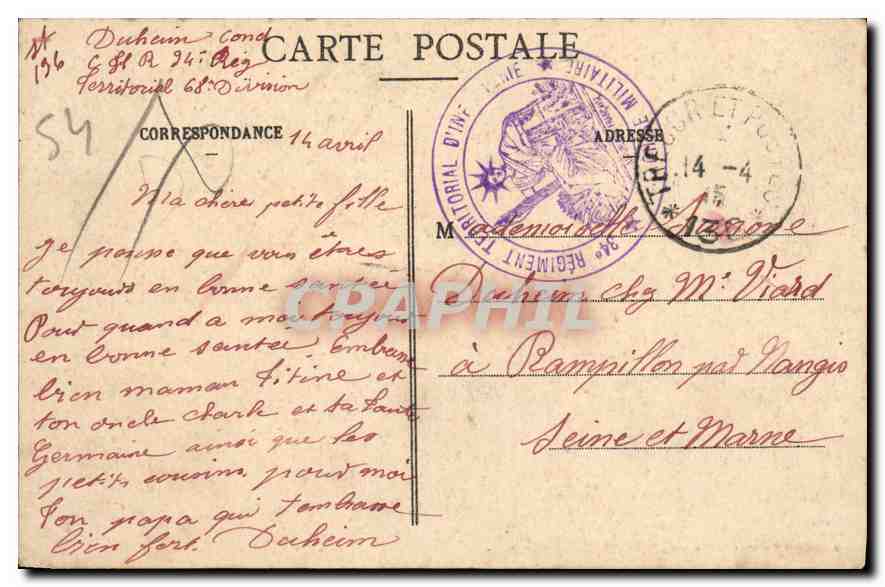 Duheim Cond
C H R 94e Rég
Territorial 68e Division
54
CARTE POSTALE
CORRESPONDANCE
ADRESSE
14 avril
Ma chère petite fille
je pense que vous êtes
toujours en bonne santée
Pour quand a moi toujours
en bonne santee. Embrasse
bien maman Titine et
ton oncle Charle et ta tante
Germaine ainsi que les
petits cousins pour moi
Ton papa qui t'embrasse
bien fort. Duheim
Mademoiselle Simone
Duheim chez Mr Viard
à Rampillon par Nangis
Seine et Marne
94e RÉGIMENT TERRITORIAL D'INFANTERIE
MILITAIRE
TRESOR ET POSTES
14 -4
15
* 138 *
CPAPHIL